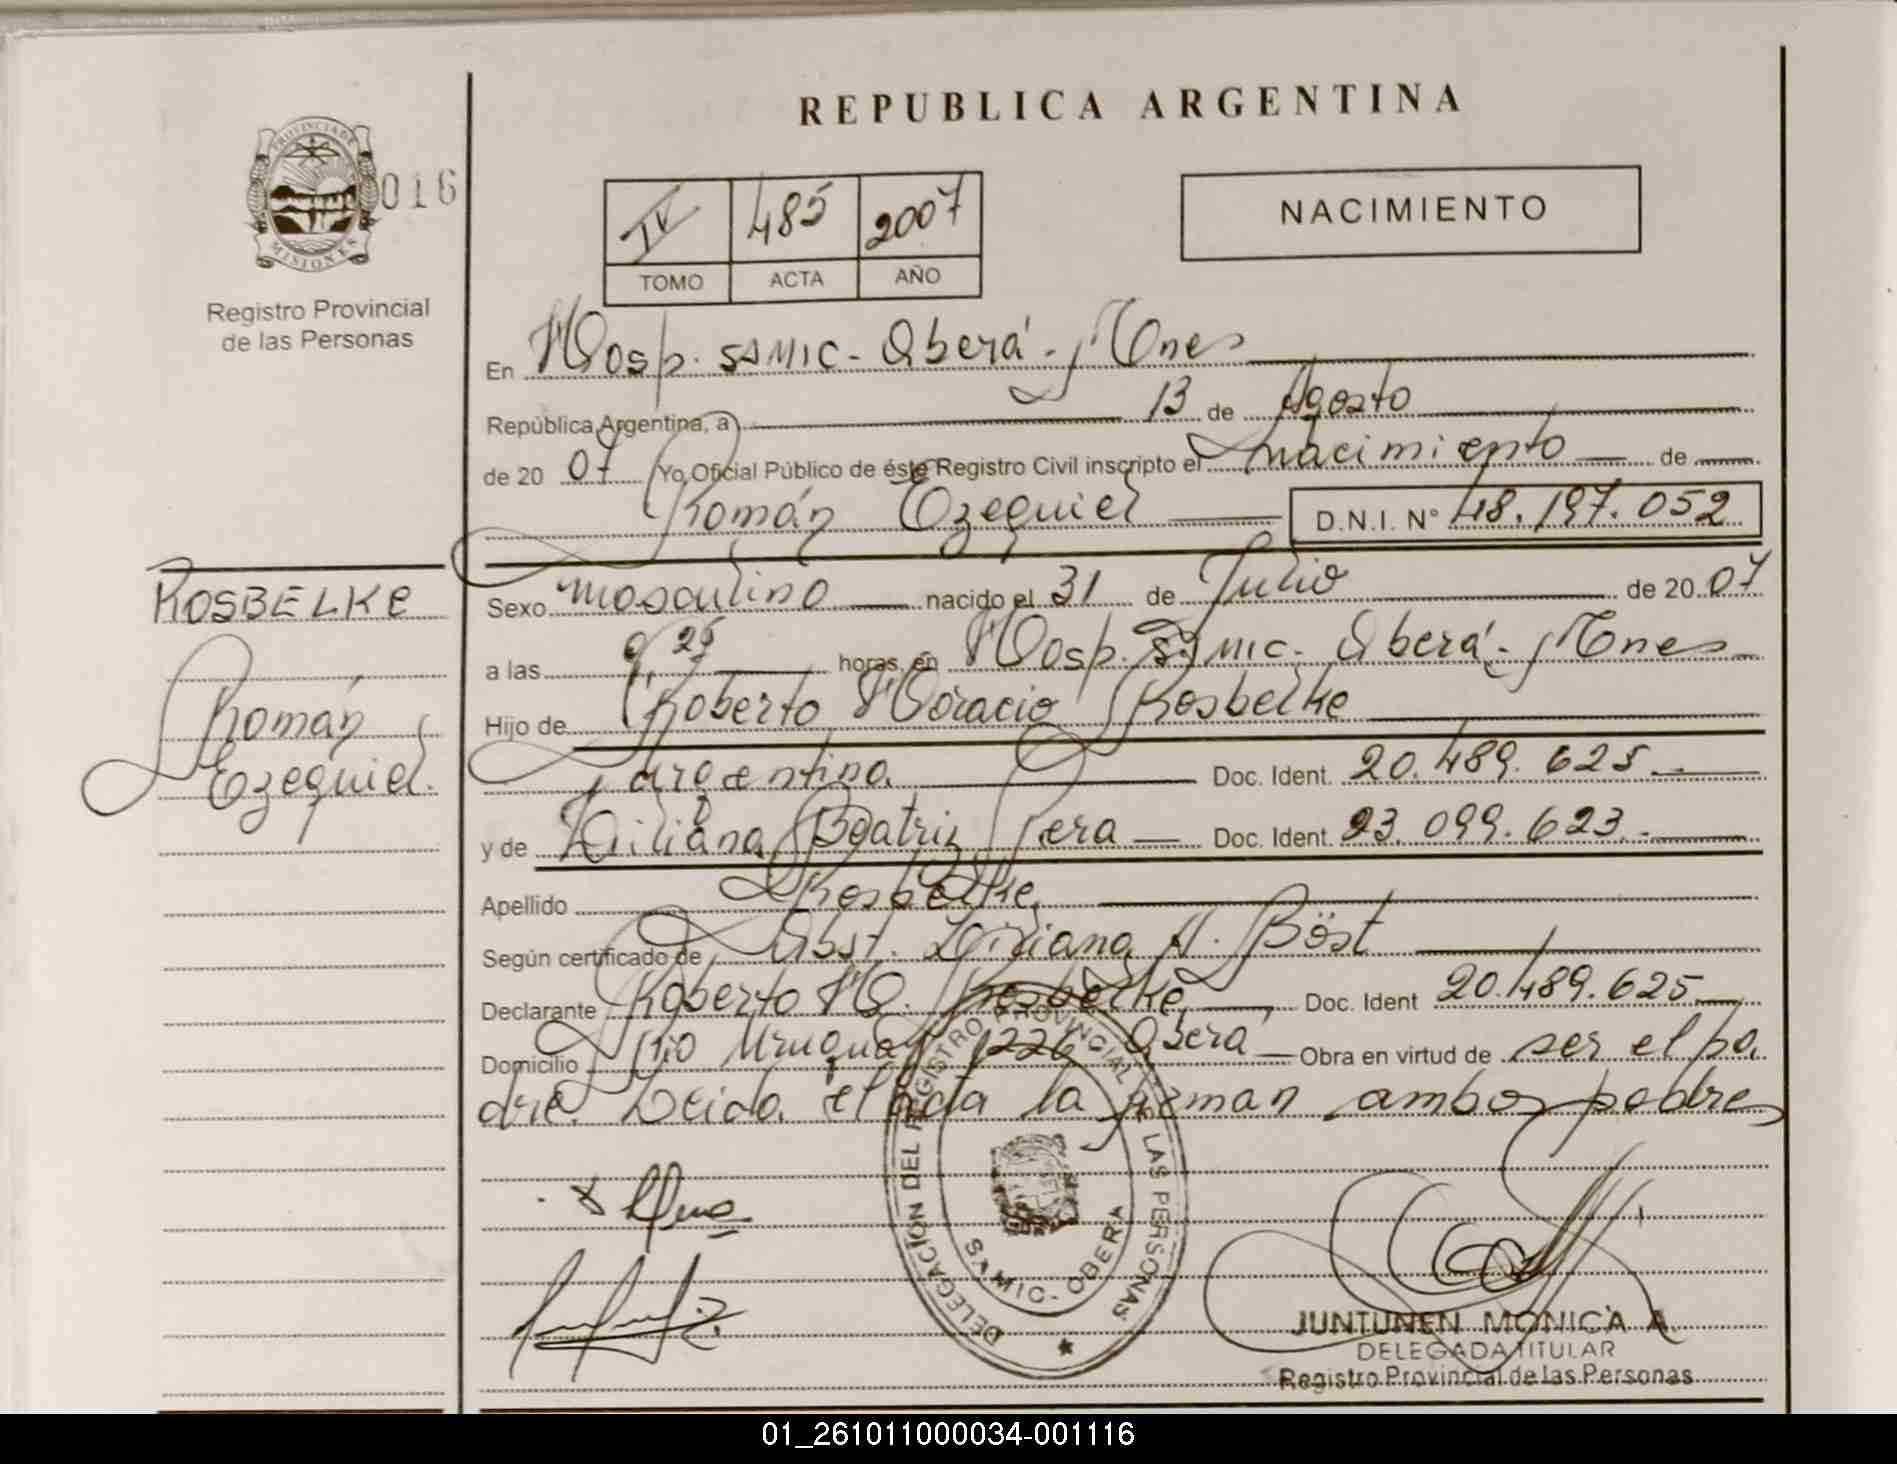 REPUBLICA ARGENTINA
PROVINCIA DE MISIONES
016
Registro Provincial
de las Personas
IV 485 2007
TOMO ACTA AÑO
NACIMIENTO
En Hosp. SAMIC - Oberá - Mnes
República Argentina, a 13 de Agosto
de 20 07 Yo Oficial Público de éste Registro Civil inscripto el nacimiento de
Román Ezequiel D.N.I. N° 48.197.052
ROSBELKE
Román
Ezequiel.
Sexo masculino nacido el 31 de Julio de 20 07
a las 9,25 horas, en Hosp. SAMIC - Oberá - Mnes
Hijo de Roberto Horacio Rosbelke
Argentina Doc. Ident. 20.489.625.-
y de Liliana Beatriz Pera Doc. Ident. 23.099.623.-
Apellido Rosbelke
Según certificado de Obst. Liliana A. Böst
Declarante Roberto H. Rosbelke Doc. Ident 20.489.625
Domicilio Río Uruguay 1226 Oberá Obra en virtud de ser el pa
dre. Leida el acta la firman ambos padres
DELEGACIÓN DEL REGISTRO PROVINCIAL DE LAS PERSONAS
SAMIC - OBERA
JUNTUNEN MONICA A
DELEGADA TITULAR
Registro Provincial de las Personas
01_261011000034-001116